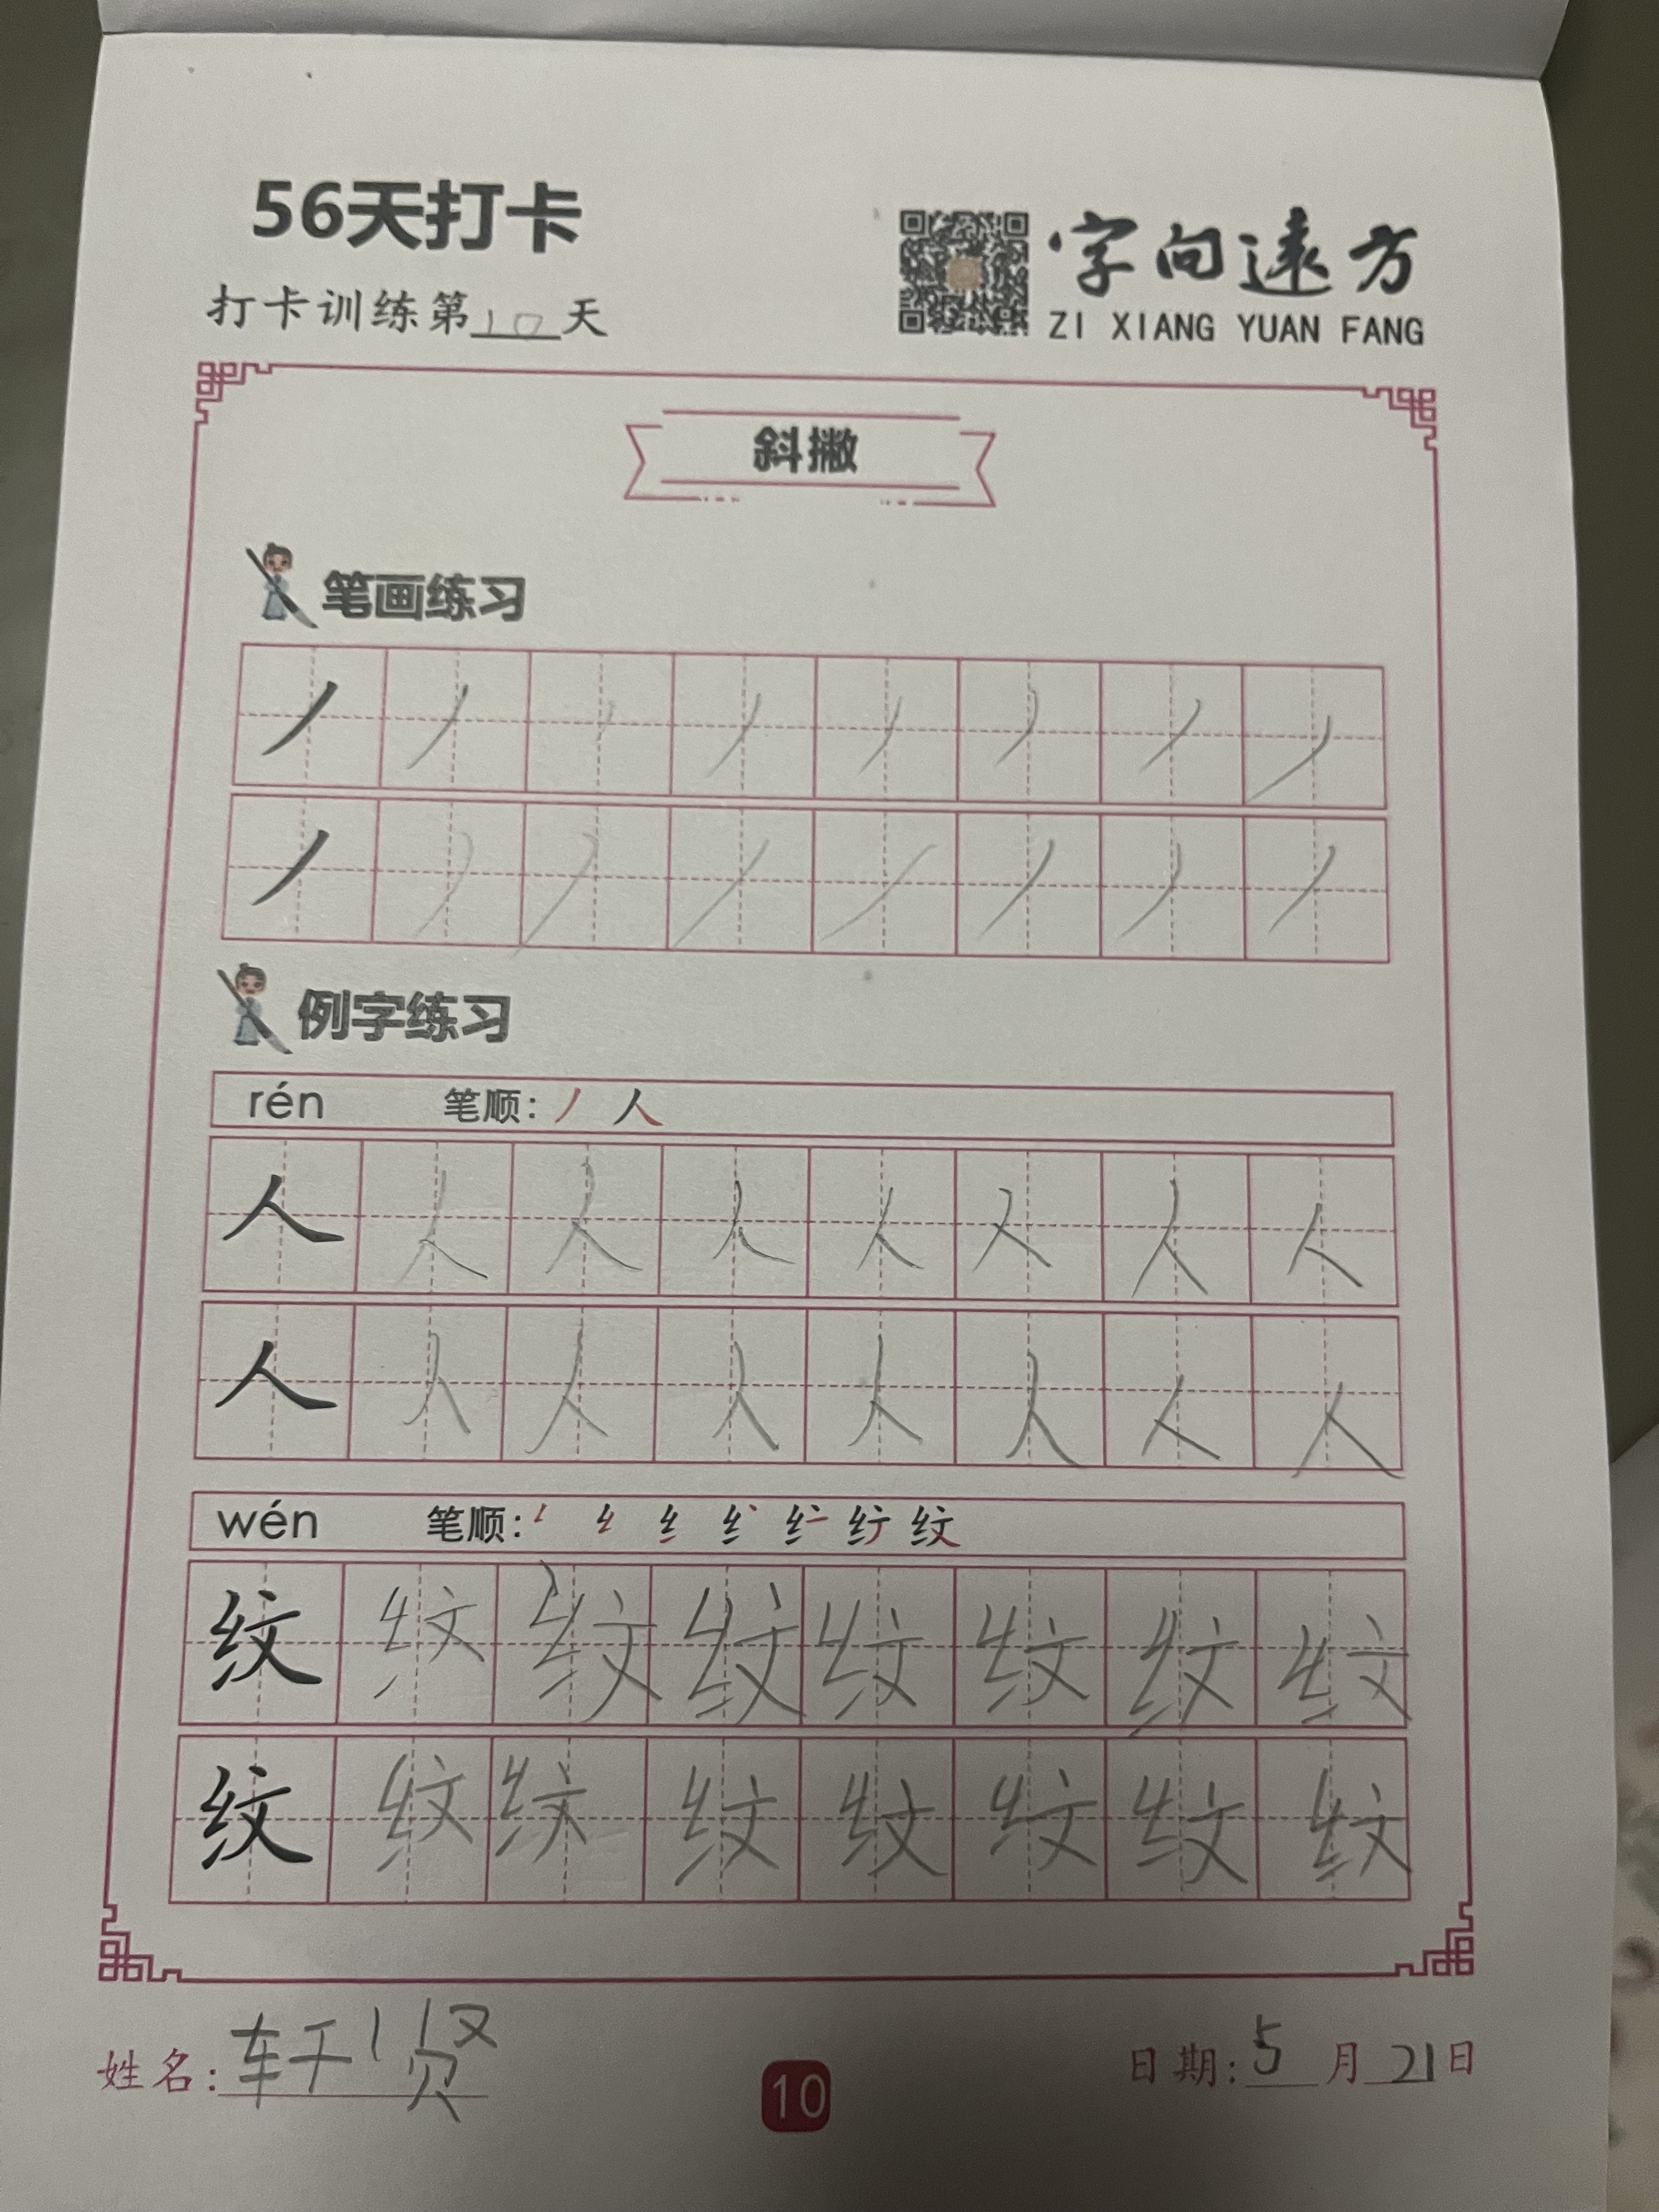 56天打卡
打卡训练第10天
字向遠方
ZI XIANG YUAN FANG
斜撇
笔画练习
丿 丿 丿 丿 丿 丿 丿 丿
丿 丿 丿 丿 丿 丿 丿 丿
例字练习
rén 笔顺: 丿 人
人 人 人 人 人 人 人 人
人 人 人 人 人 人 人 人
wén 笔顺: 纹
纹 纹 纹 纹 纹 纹 纹 纹
纹 纹 纹 纹 纹 纹 纹 纹
姓名: 轩贤
10
日期: 5月21日